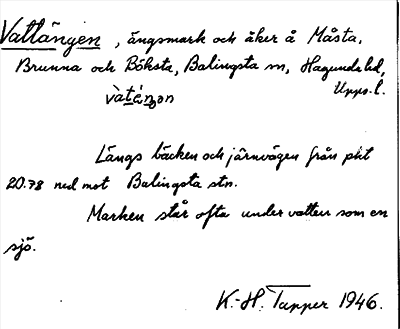 Vattängen, ängsmark och åker å Måsta,
Brunna och Böksta, Balingsta sn, Hagunda hd,
Upps. l.
Längs bäcken och järnvägen från pkt
20.78 ned mot Balingsta stn.
Marken står ofta under vatten som en
sjö.
K.-H. Tapper 1946.